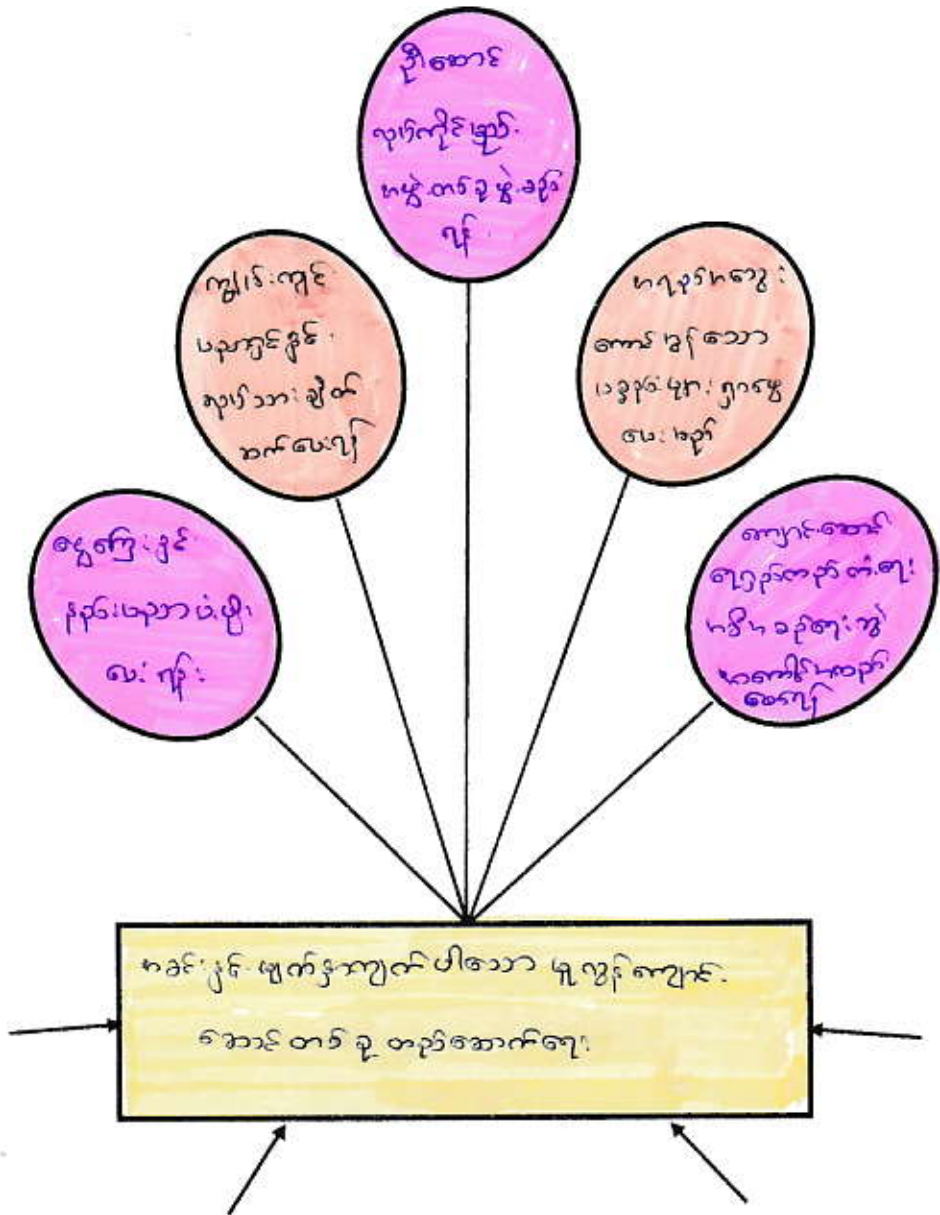 ဦးဆောင်
လုပ်ကိုင်မည့်
အဖွဲ့တစ်ခုဖွဲ့စည်း
ရန်
ကျွမ်းကျင်
ပညာရှင်နှင့်
လုပ်သားချိတ်
ဆက်ပေးရန်
အရည်အသွေး
ကောင်းမွန်သော
ပစ္စည်းများရှာဖွေ
ပေးမည်
ငွေကြေးနှင့်
နည်းပညာပံ့ပိုး
ပေးရန်
ကျောင်းဆောင်
ရေရှည်တည်တံ့ရေး
အစီအစဉ်ရေးဆွဲ
အကောင်အထည်
ဖော်ရန်
အခင်းနှင့် မျက်နှာကျက် ပါသော မူလွန်ကျောင်း
ဆောင်တစ်ခု တည်ဆောက်ရေး